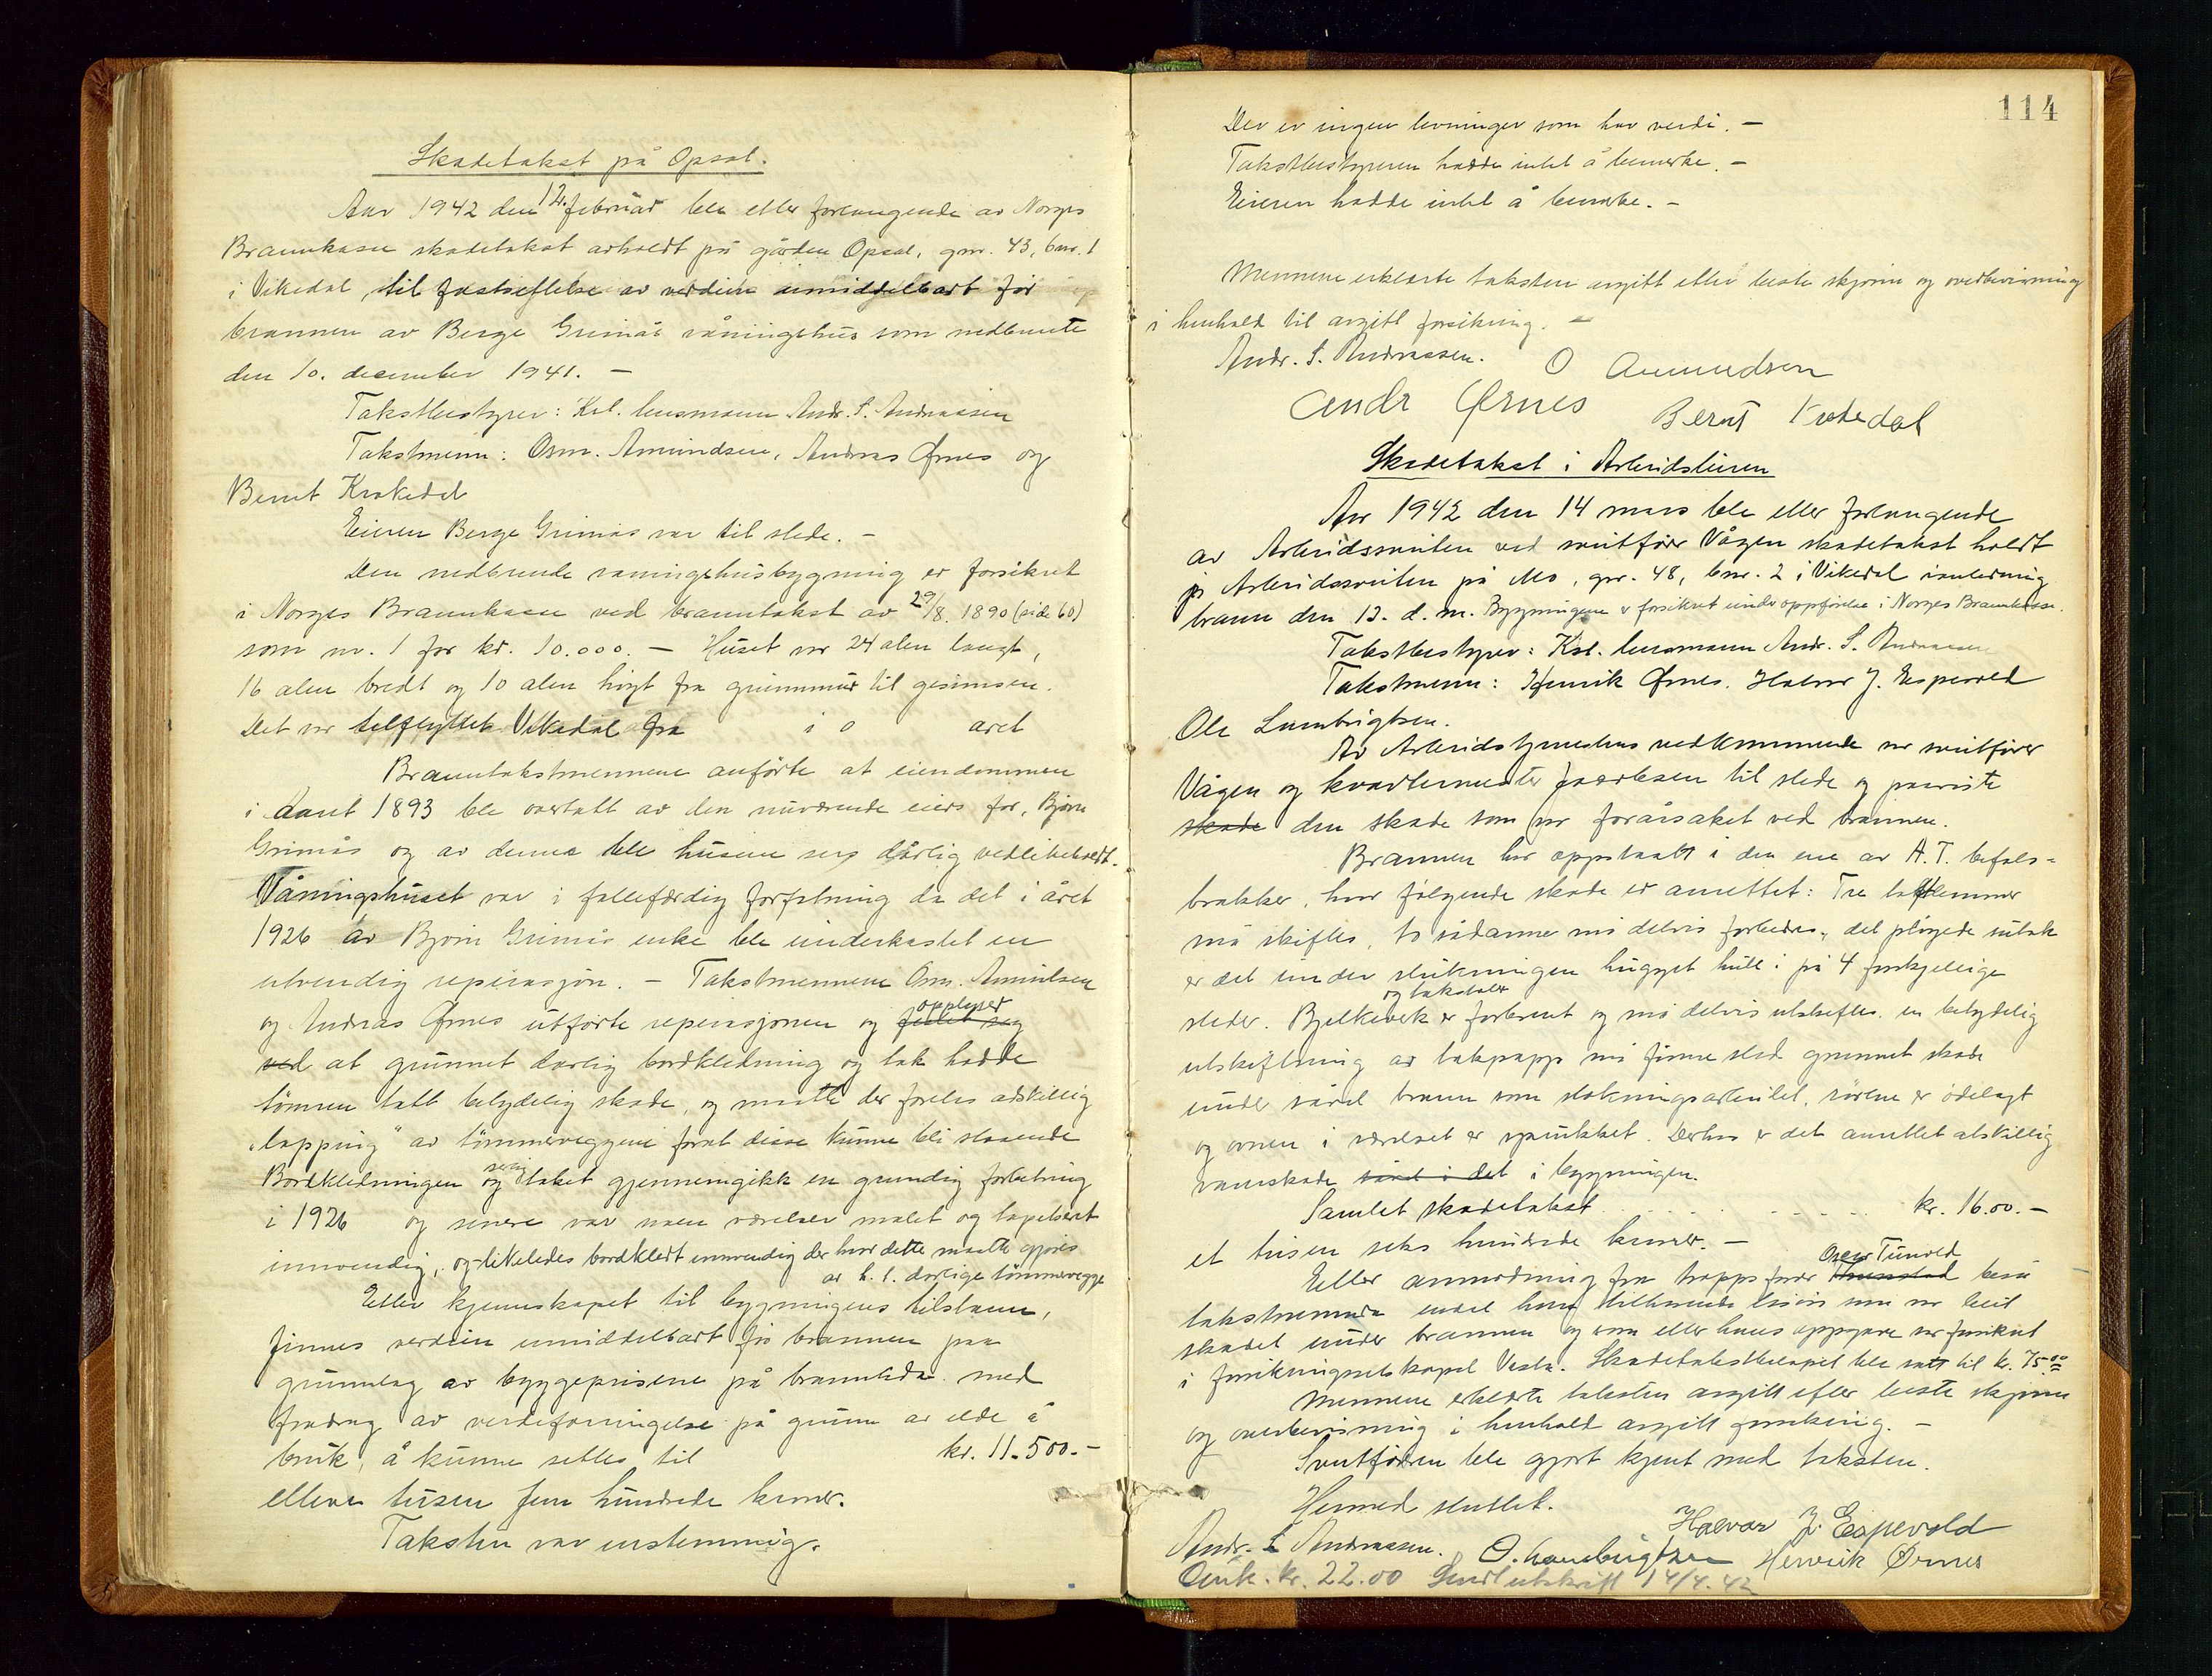 Skadetakst på Opsal.
Aar 1942 den 12. februar ble etter forlangende av Norges
Brannkasse skadetakst avholdt på gården Opsal, gnr. 43, bnr. 1
i Vikedal, til fastsettelse av verdien umiddelbart før
brannen av Berge Grimås våningshus som nedbrente
den 10. december 1941. -
Takstbestyrer: Kst. lensmann Andr. S. Andreassen
Takstmenn: Osm. Amundsen, Andreas Ørnes og
Bernt Krakedal
Eieren Berge Grimås var til stede. -
Den nedbrente våningshusbygning er forsikret
i Norges Brannkasse ved branntakst av 29/8. 1890 (side 60)
som nr. 1 for kr. 10.000. - Huset var 24 alen langt,
16 alen bredt og 10 alen høyt fra grunnmur til gesimsen.
Det var tilflyttet Vikedal fra i året
Branntakstmennene anførte at eiendommen
i aaret 1893 ble overtatt av den nuværende eiers far, Bjørn
Grimås og av denne ble husene dårlig vedlikeholdt.
Våningshuset var i fallefærdig forfatning da det i året
1926 av Bjørn Grimås enke ble underkastet en
utvendig reperasjon. - Takstmennene Osm. Amundsen
og Andreas Ørnes utførte reperasjonen og opplyser
ved at grunnet dårlig bordkledning og tak hadde
tømren tatt betydelig skade, og maatte der foretas adskillig
"lapping" av tømmerveggene forat disse kunne bli staaende
Bordkledningen og taket gjennemgikk en grundig forbetring
i 1926 og senere var noen værelser malet og tapetsert
innvendig, og likeledes bordkledt innvendig der hvor dette maatte gjøres
av h. t. dårlige tømmervegge
Etter kjennskapet til bygningens tilstann,
finnes verdien umiddelbart før brannen paa
grunnlag av byggeprisene på branntida med
fradrag av verdiforringelse på grunn av elde &
bruk, å kunne settes til kr. 11.500.-
elleve tusen fem hundrede kroner.
Taksten var enstemmig.
114
Der er ingen levninger som har verdi. -
Takstbestyreren hadde intet å bemerke. -
Eieren hadde intet å bemerke. -
Mennene erklærte taksten avgitt etter beste skjønn og overbevisning
i henhold til avgitt forsikring. -
Andr. S. Andreassen. O Amundsen
Andr Ørnes Bernt Krakedal
Skadetakst i Arbeidsleiren
Aar 1942 den 14 mars ble etter forlangende
av Arbeidssveiten ved sveitfører Vågen skadetakst holdt
på Arbeidssveiten på Mo, gnr. 48, bnr. 2 i Vikedal i anledning
brann den 13. d. m. Bygningene er forsikret under oppførelse i Norges Brannkasse.
Takstbestyrer: Kst. lensmann Andr. S. Andreassen
Takstmenn: Henrik Ørnes, Halvor J. Espevold
Ole Lambrigtsen.
Av Arbeidstjenestens vedkommende var sveitfører
Vågen og kvartermester til stede og paaviste
skade den skade som var forårsaket ved brannen.
Brannen har oppstaatt i den ene av A.T. befals-
brakker, hvor følgende skade er anrettet: Tre loftlemmer
må skiftes, to sådanne må delvis forbedres, det pløyede
er det under slukningen hugget hull i på 4 forskjellige
steder. Bjelkeverk og taksteler er forbrent og må delvis utskiftes, en betydelig
utskiftning av takpapp må finne sted grunnet skade
under såvel brann som slokningsarbeidet, rørene er ødelagt
og ovnen i værelset er sprukket. Derhos er det anrettet atskillig
vannskade såvel i det i bygningen.
Samlet skadetakst . . . . . . kr. 16.00.-
et tusen seks hundrede kroner. -
Etter anmodning fra troppsfører Oscar Tunvold besaa
takstmennene endel ham tilhørende som var blit
skadet under brannen og som etter hans oppgave var forsikret
i forsikringsselskapet Vesta. Skadetakstbeløpet ble satt til kr. 75.00
Mennene erklærte taksten avgitt efter beste skjønn
og overbevisning i henhold avgitt forsikring. -
Sveitføreren ble gjort kjent med taksten.
Hermed sluttet.
Halvor J. Espevold
Andr. S Andreassen. O. Lambrigtsen Henrik Ørnes
Omk. kr. 22.00 Sendt utskrift 14/4. 42